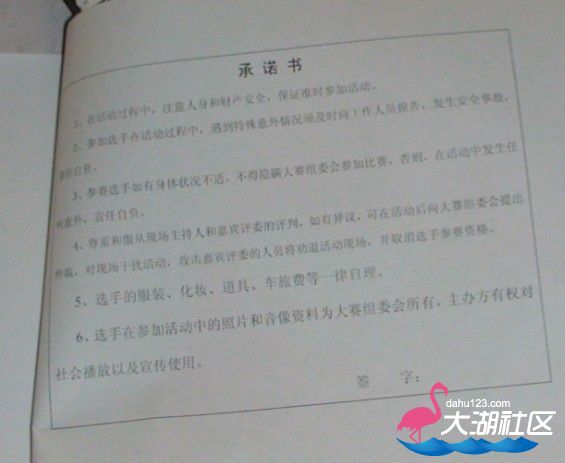 承诺书
1、在活动过程中，注意人身和财产安全，保证准时参加活动。
2、参加选手在活动过程中，遇到特殊意外情况须及时向工作人员报告，发生安全事故，
责任自负。
3、参赛选手如有身体状况不适，不得隐瞒大赛组委会参加比赛，否则，在活动中发生任
何意外，责任自负。
4、尊重和服从现场主持人和嘉宾评委的评判，如有异议，可在活动后向大赛组委会提出
仲裁，对现场干扰活动，攻击嘉宾评委的人员将劝退活动现场，并取消选手参赛资格。
5、选手的服装、化妆、道具、车旅费等一律自理。
6、选手在参加活动中的照片和音像资料为大赛组委会所有，主办方有权对
社会播放以及宣传使用。
签 字：
dahu123.com
大湖社区